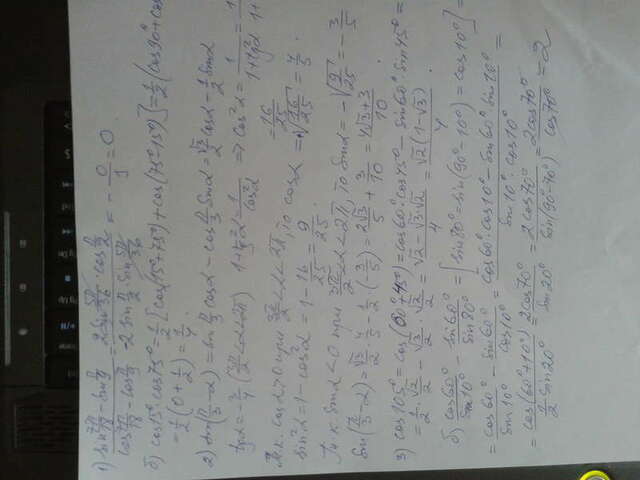 1) (sin 7π/18 - sin π/9)/(cos 7π/18 - cos π/9) = = - 0/1 = 0.
б) cos15°·cos75° = 1/2[cos(15°+75°) + cos(75°-15°)] = 1/2(cos90° + cos
= 1/2(0 + 1/2) = 1/4
2) sin(π/3 - α) = sin π/3 cosα - cos π/3 sinα = √3/2 cosα - 1/2 sinα
tgα = -3/4 (3π/2 < α < 2π) 1 + tg²α = 1/cos²α => cos²α = 1/(1+tg²α) =
= 16/25
Т.к. cosα > 0 при 3π/2 < α < 2π, то cosα = √(16/25) = 4/5
sin²α = 1 - cos²α = 1 - 16/25 = 9/25.
Т.к. sinα < 0 при 3π/2 < α < 2π, то sinα = -√(9/25) = -3/5
sin(π/3 - α) = √3/2 · 4/5 - 1/2·(-3/5) = 2√3/5 + 3/10 = (4√3+3)/10.
3) cos105° = cos(60°+45°) = cos60°·cos45° - sin60°·sin45° =
= 1/2·√2/2 - √3/2·√2/2 = (√2 - √3·√2)/4 = √2(1-√3)/4.
б) cos60°/sin10° - sin60°/sin80° = [sin80° = sin(90°-10°) = cos10°] =
= cos60°/sin10° - sin60°/cos10° = (cos60°·cos10° - sin60°·sin10°)/(sin10°·cos10°) =
= cos(60°+10°)/(1/2 sin20°) = 2cos70°/sin20° = 2cos70°/sin(90°-70°) = 2cos70°/cos70° = 2